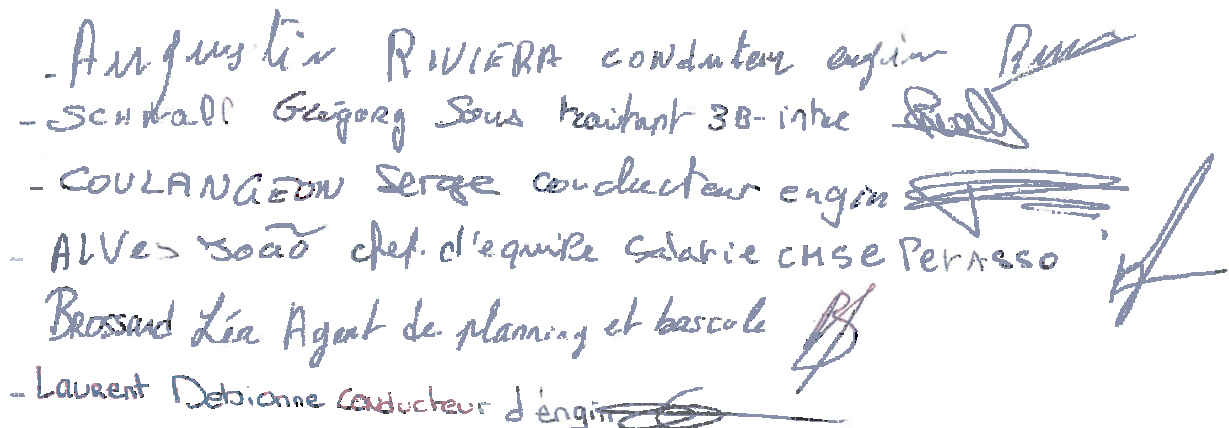 - Augustin RIVIERA conduteur engin
- SCHWALL Grégory Sous traitant 3B-inter
- COULANGEON Serge conducteur engin
- ALVES João chef. d'equipe Salarie CMSE PerAsso
Brossard Léa Agent de planning et bascule
- Laurent Debionne conducteur d'éngin